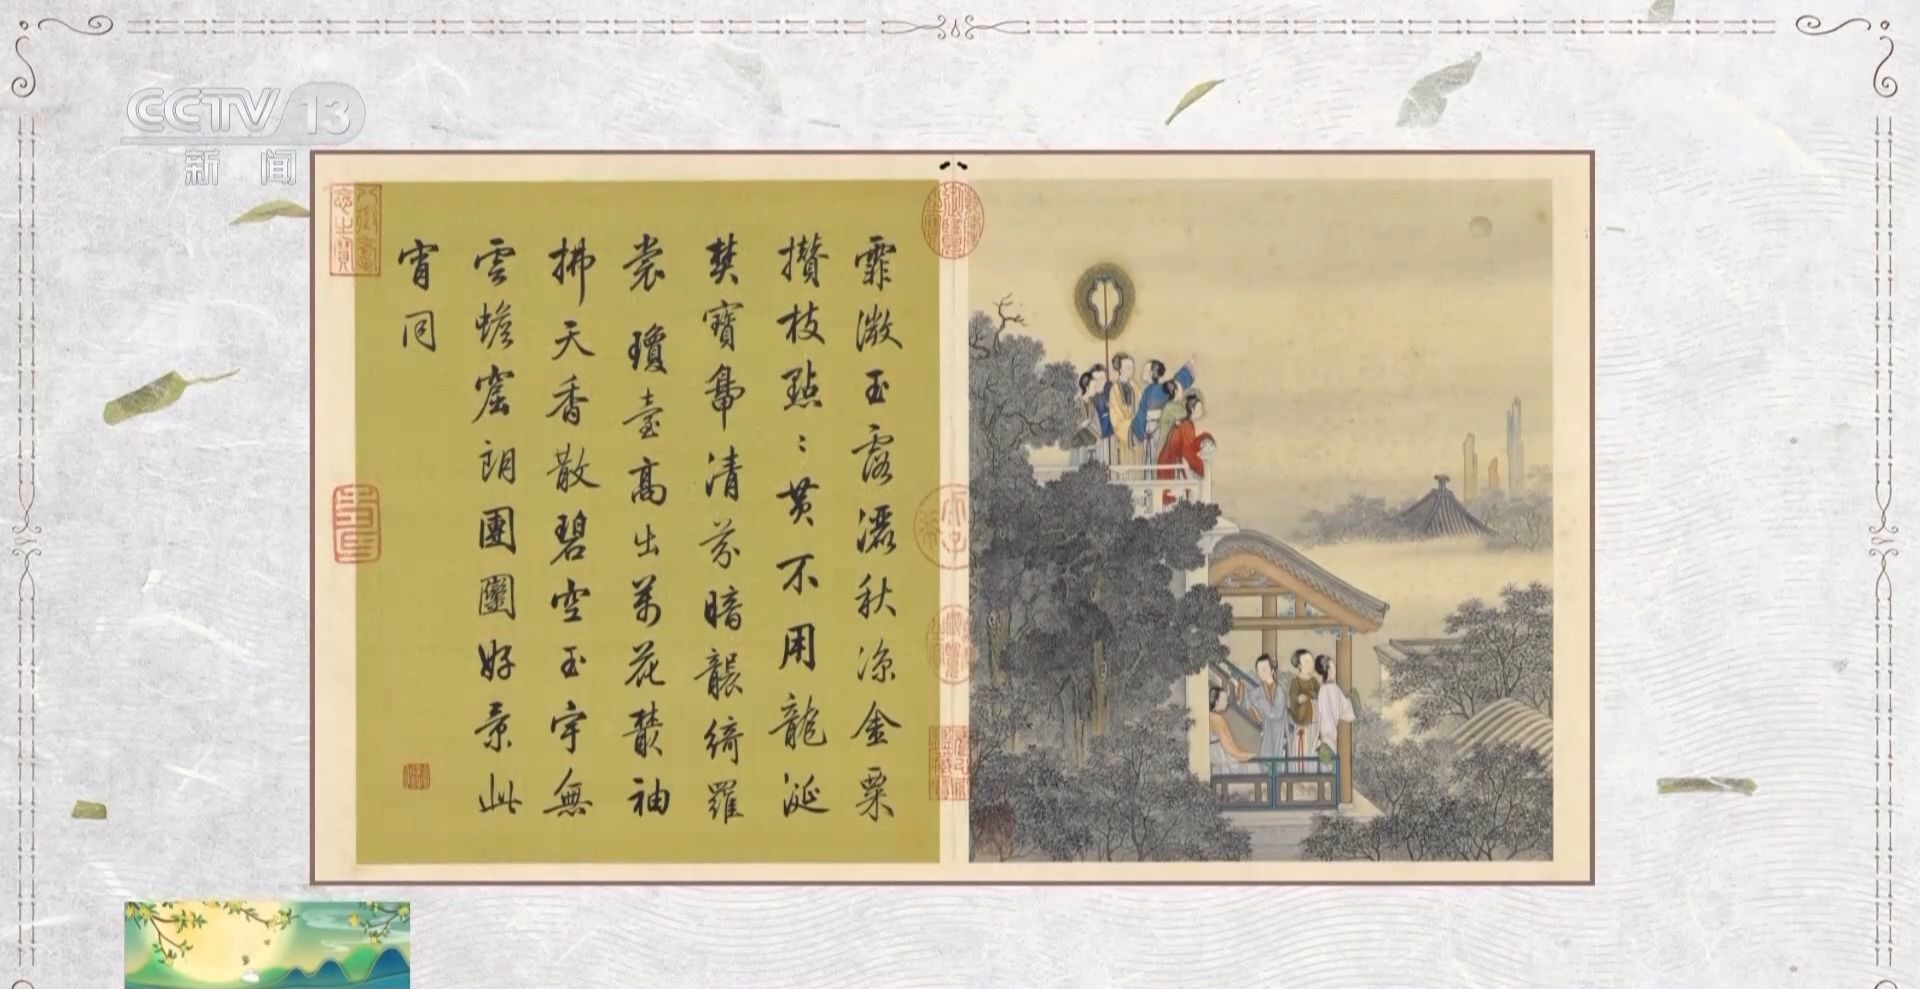 CCTV 13
新闻
霏微玉露灑秋凉金粟
攢枝點〻黄不用龍涎
焚寶鼎清芬暗襲綺羅
裳 瓊臺高出萬花叢袖
拂天香散碧空玉宇無
雲蟾窟朗團圞好景此
宵同
八徵耄念之寶